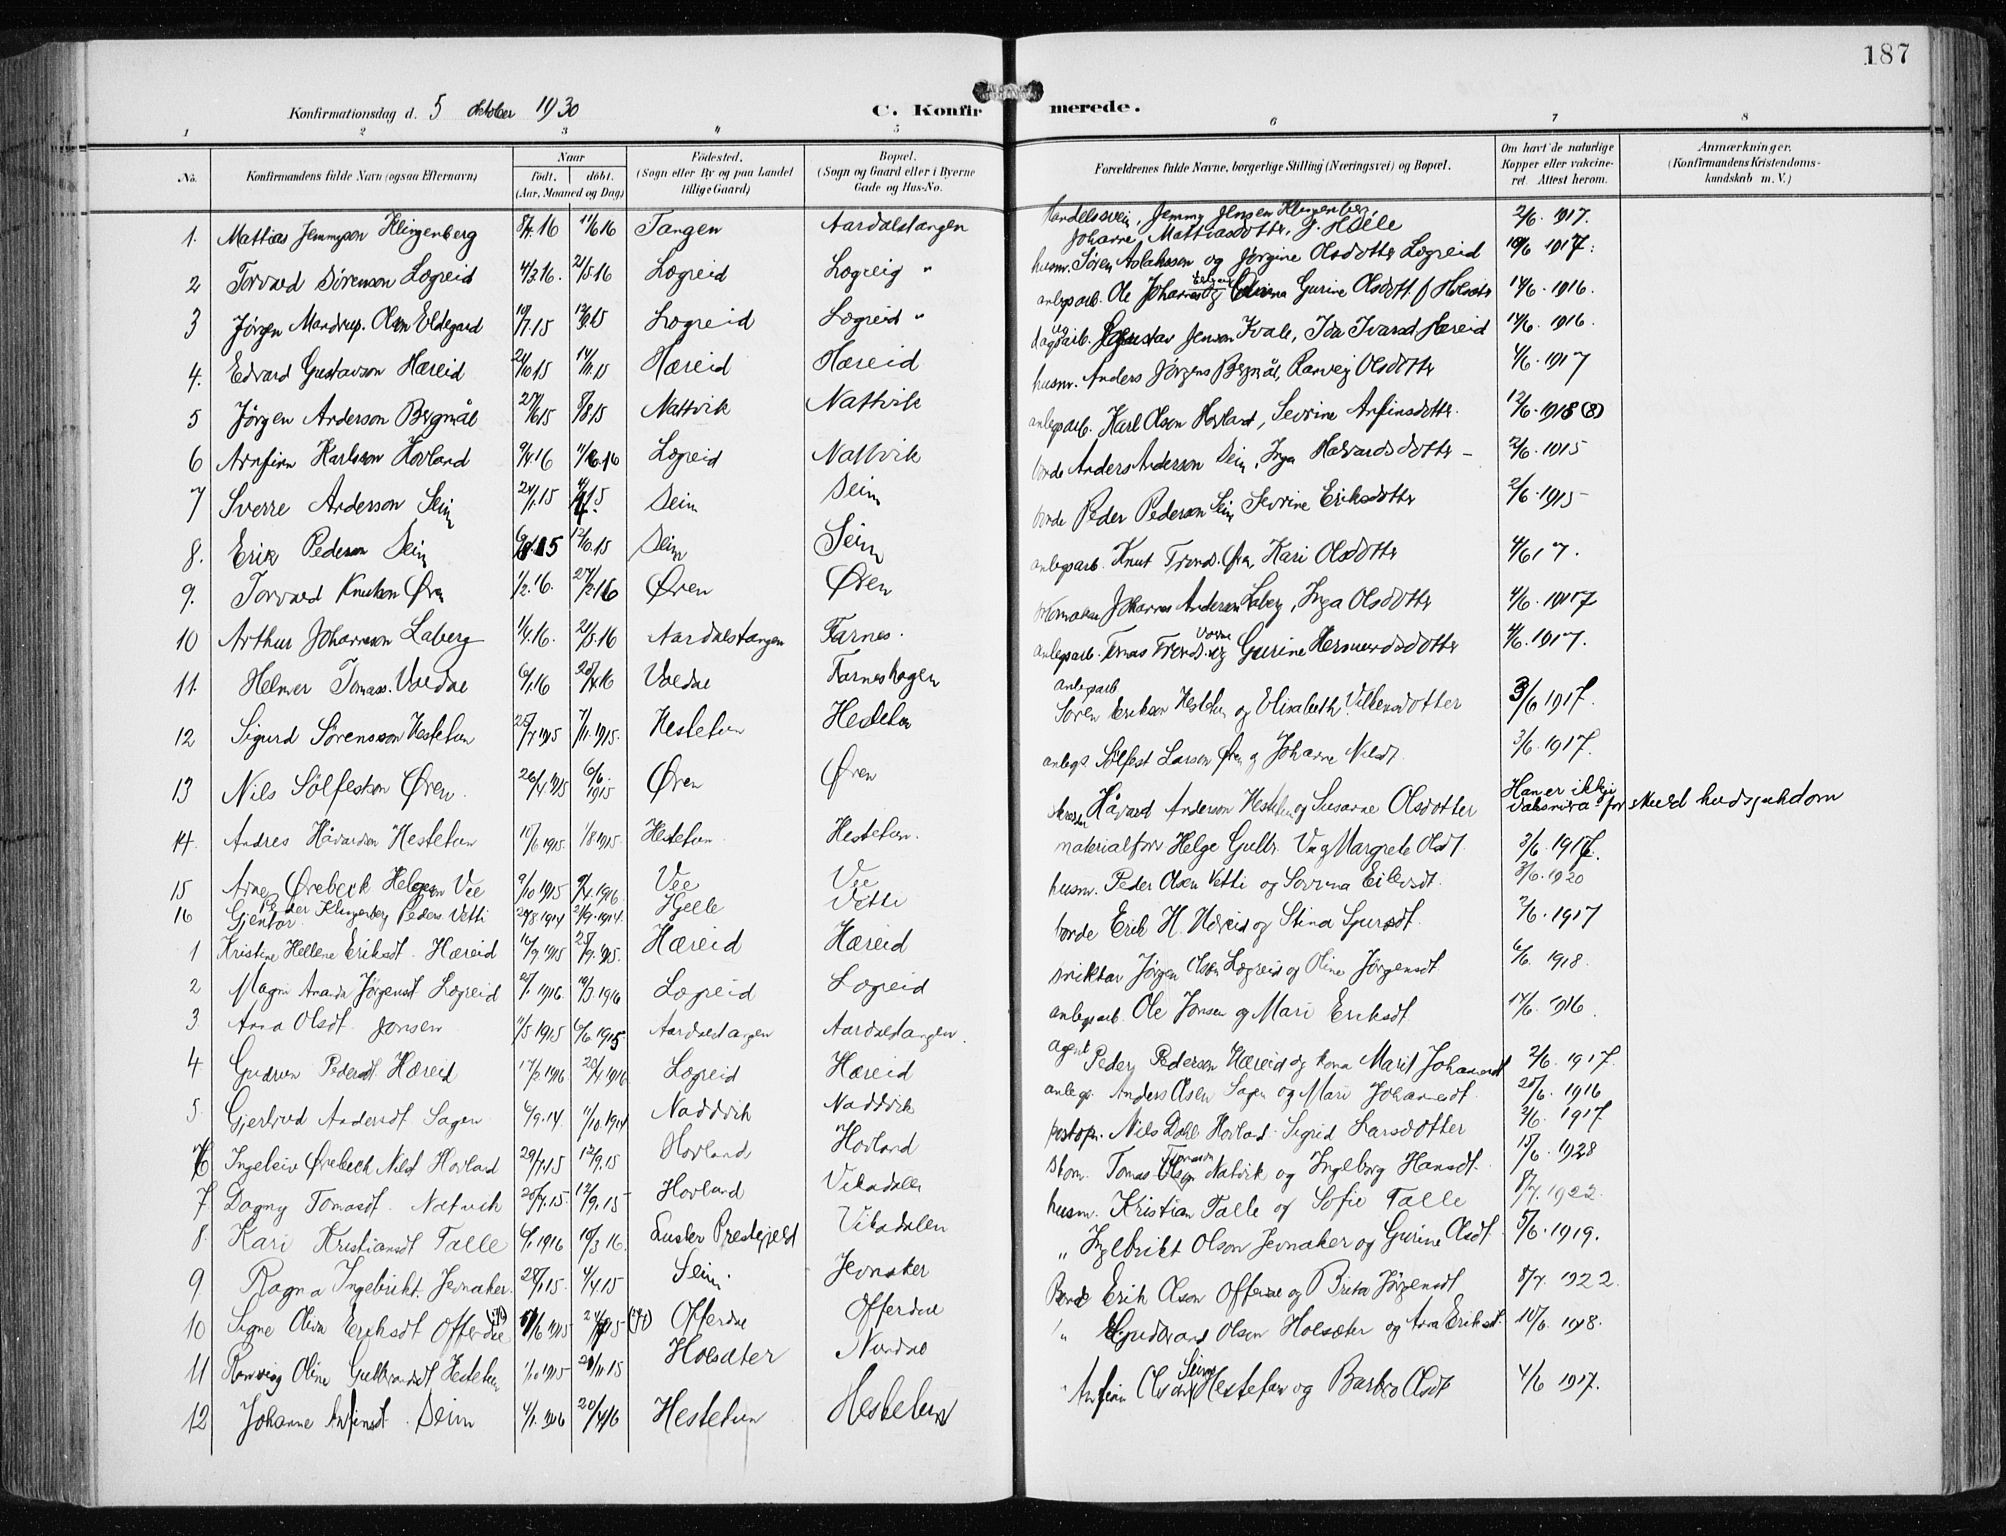 187
Konfirmationsdag d. 5 oktober 1930
C. Konfirmerede.
1 2 3 4 5 6 7 8
No. Konfirmandens fulde Navn (ogsaa Efternavn) Naar födt. döbt. (Aar, Maaned og Dag) Födested. (Sogn eller By og paa Landet tillige Gaard) Bopæl. (Sogn og Gaard eller i Byerne Gade og Hus-No. Forældrenes fulde Navne, borgerlige Stilling (Næringsvei) og Bopæl. Om havt de naturlige Kopper eller vakcineret. Attest herom. Anmærkninger. (Konfirmandens Kristendomskundskab m. V.)
1. Mattias Jemmyson Klingenberg 8/4 16 11/6 16 Tangen Aardalstangen Jemmy Jensen Klingenberg, Johanne Mattiasdotter, 2/6. 1917.
2 Torvald Sörenson Lægreid 4/3 16. 21/5 16 Lægreid Lægreig " husm. Sören Aslaksson og Jørgine Olsdotter Lægreid 10/6 1917.
3 Jørgen Mandrup Olsen Eldegard 19/7.15 Lægreid Lægreid " anlegsarb. Ole Johannes og Gurine Olsdott 14/6. 1916.
4. Edvard Gustavson Hæreid 24/10 15 14/11.15 Hæreid Hæreid Gustav Jenson Kvale, Ida Ivarsd Hæreid 14/6. 1916.
5 Jørgen Anderson Bergmål 27/6 15 8/8.15 Nattvik Nattvik husm. Anders Jørgens Bergmål, Ranveig Olsdotter 4/6. 1917
6 Arnfinn Karlsson Hovland 9/4 16 Lægreid Nattvik anlegsarb. Karl Olsen Hovland, Sevrine Anfinsdotter. 12/6. 1918 (8)
7 Sverre Anderson Seim 24/1.15 Seim Seim bonde Anders Anderson Seim, Inga Halvardsdotter - 2/6. 1915
8. Erik Pederson Seim 12/10.15 Seim Seim bonde Peder Pederson Seim Sevrine Eriksdotter 2/6. 1915
9. Torvald Knutson Øren 1/2.16. 27/2 16 Øren Øren anlegsarb. Knut Tronds. Øren, Kari Olsdotter 4/6 17.
10 Arthur Johanneson Laberg 1/4.16. 21/5.16 Aardalstangen Farnes. Johannes Anderson Laberg, Inga Olsdotter 4/6. 1917
11. Helmer Tomass. Voldae 6/1.16 Voldae Farneshagen anlegsarb. Tomas Tronds. og Gurine Hermundsdotter 4/6. 1917.
12 Sigurd Sörensson Hestetun 25/7 1915 7/11.1915. Hestetun Hestetun anlegsarb Sören Erikson Hestetun og Elisabeth Vilhemsdotter 3/6 1917.
13 Nils Sölfestson Øren. 26/4 1915 6/6. 1915 Øren Øren anlegs. Sölfest Larson Øren og Johanne Nilsdt. 3/6. 1917.
14. Andres Håvardson Hestetun 10/6 1915. 1/8 1915. Hestetun. Hestetun. Håvard Anderson Hestetun og Susanne Olsdotter Han er ikkje vaksinera for skuld hudsjukdom
15 Arne Ørebeck Helgeson Vee 9/10 1915 9/4.1916 Vee Vee materialforv Helge Gulbr. Ve og Margrete Olsdt. 3/6. 1917.
16 Peder Klingenberg Peders. Vetti 24/8 1914 Hjelle Vetti husm. Peder Olsen Vetti og Sovina Eilevsdt. 3/6. 1920
Gjentor
1 Kristine Hellene Eriksdt. Hæreid 16/9 1915 25/9.1915. Hæreid Hæreid bonde Erik H. Hæreid og Stina Sjursdt. 2/6. 1917
2 Magni Amanda Jørgensdt Lægreid 2/1 1916. 10/3 1916 Lægreid Lægreid Jørgen Olsen Lægreid og Oline Jørgensdt 6/6. 1918.
3 Anna Olsdt. Jonsen 11/5 1915 6/6.1915 Aardalstangen Aardalstangen. anlegsarb Ole Jonsen og Mari Eriksdt. 14/6. 1916
4 Gudrun Pedersdt Hæreid 17/2 1916 Lægreid Hæreid Agent Peder Pederson Hæreid og kona Marit Johannesdt 2/6. 1917.
5. Gjertrud Andersdt Sagen 6/9.14. 11/10.1914 Naddvik Naddvik anlegs. Anders Olsen Sagen og Mari Johannesdt. 25/6. 1916
6 Ingeleiv Ørebech Nilsdt Hovland 29/7.15 12/9.15 Hovland Hovland postopn. Nils Dahl Hovland. Sigrid Larsdotter 2/6. 1917
7 Dagny Tomasdt. Natvik 20/7.15. 12/9.15 Hovland Vikadalen Tomas Natvik og Ingeborg Hansdt. 15/6. 1928
8 Kari Kristiansdt Talle 6/1 1916 19/3 16. Luster Prestegjeld Vikadalen husm. Kristian Talle og Sofie Talle 8/7. 1922.
9 Ragna Ingebrikt. Jevnaker. 28/1.15. 4/4.15 Seim. Jevnaker " Ingebrikt Olson Jevnaker og Gurine Olsdt. 5/6. 1919.
10 Signe Olina Eriksdt Offerdae Offerdae Offerdae Bonde Erik Olson Offerdae og Brita Jørgensdt 8/7. 1922.
11 Ranveig Oline Gulbrandsdt Hestetun 1/10 1915 21/11.15 Holsæter Nundae " Gudbrand Olsen Holsæter og Anna Eriksdt. 10/6. 1918.
12 Johanne Anfinsdt. Seim 4/1. 1916 20/4 16 Hestetun Hestetun " Anfinn Olsson Seim Hestetun og Barbro Olsdt 4/6 1917.